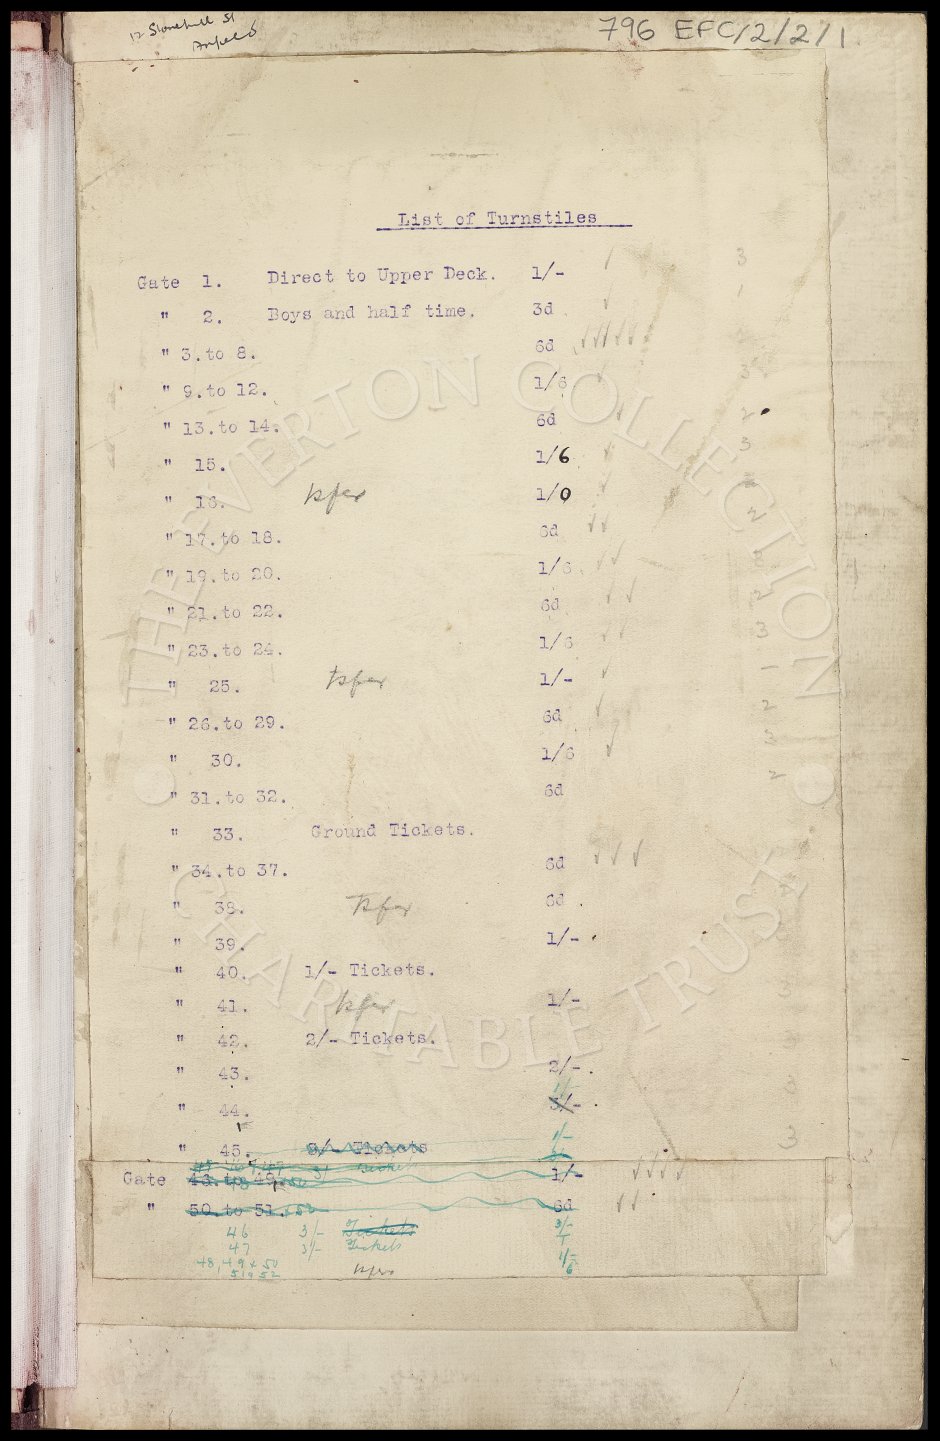 12 Stonehill St
Anfield
796 EFC/2/2/1
List of Turnstiles
Gate 1. Direct to Upper Deck. 1/- 3
" 2. Boys and half time. 3d 1
" 3.to 8. 6d
" 9.to 12. 1/6 3
" 13.to 14. 6d 2
" 15. 1/6 3
" 16. tsfer 1/0
" 17.to 18. 6d 2
" 19.to 20. 1/6 3
" 21.to 22. 6d 2
" 23.to 24. 1/6 3
" 25. tsfer 1/- 1
" 26.to 29. 6d 2
" 30. 1/6 3
" 31.to 32. 6d 2
" 33. Ground Tickets.
" 34.to 37. 6d
" 38. Tsfer 6d .
" 39. 1/-
" 40. 1/- Tickets.
" 41. tsfer 1/-
" 42. 2/- Tickets.
" 43. 2/- .
1/-
" 44. 3/- . 3
1/-
" 45. 3/- Tickets 3
3/- Tickets
Gate 48.to 49. 1/-
" 50.to 51. & 52 6d
46 3/- Tickets 3/-
47 3/- Tickets
48, 49 & 50 1/-
51 & 52 tsfer 6
THE EVERTON COLLECTION
CHARITABLE TRUST